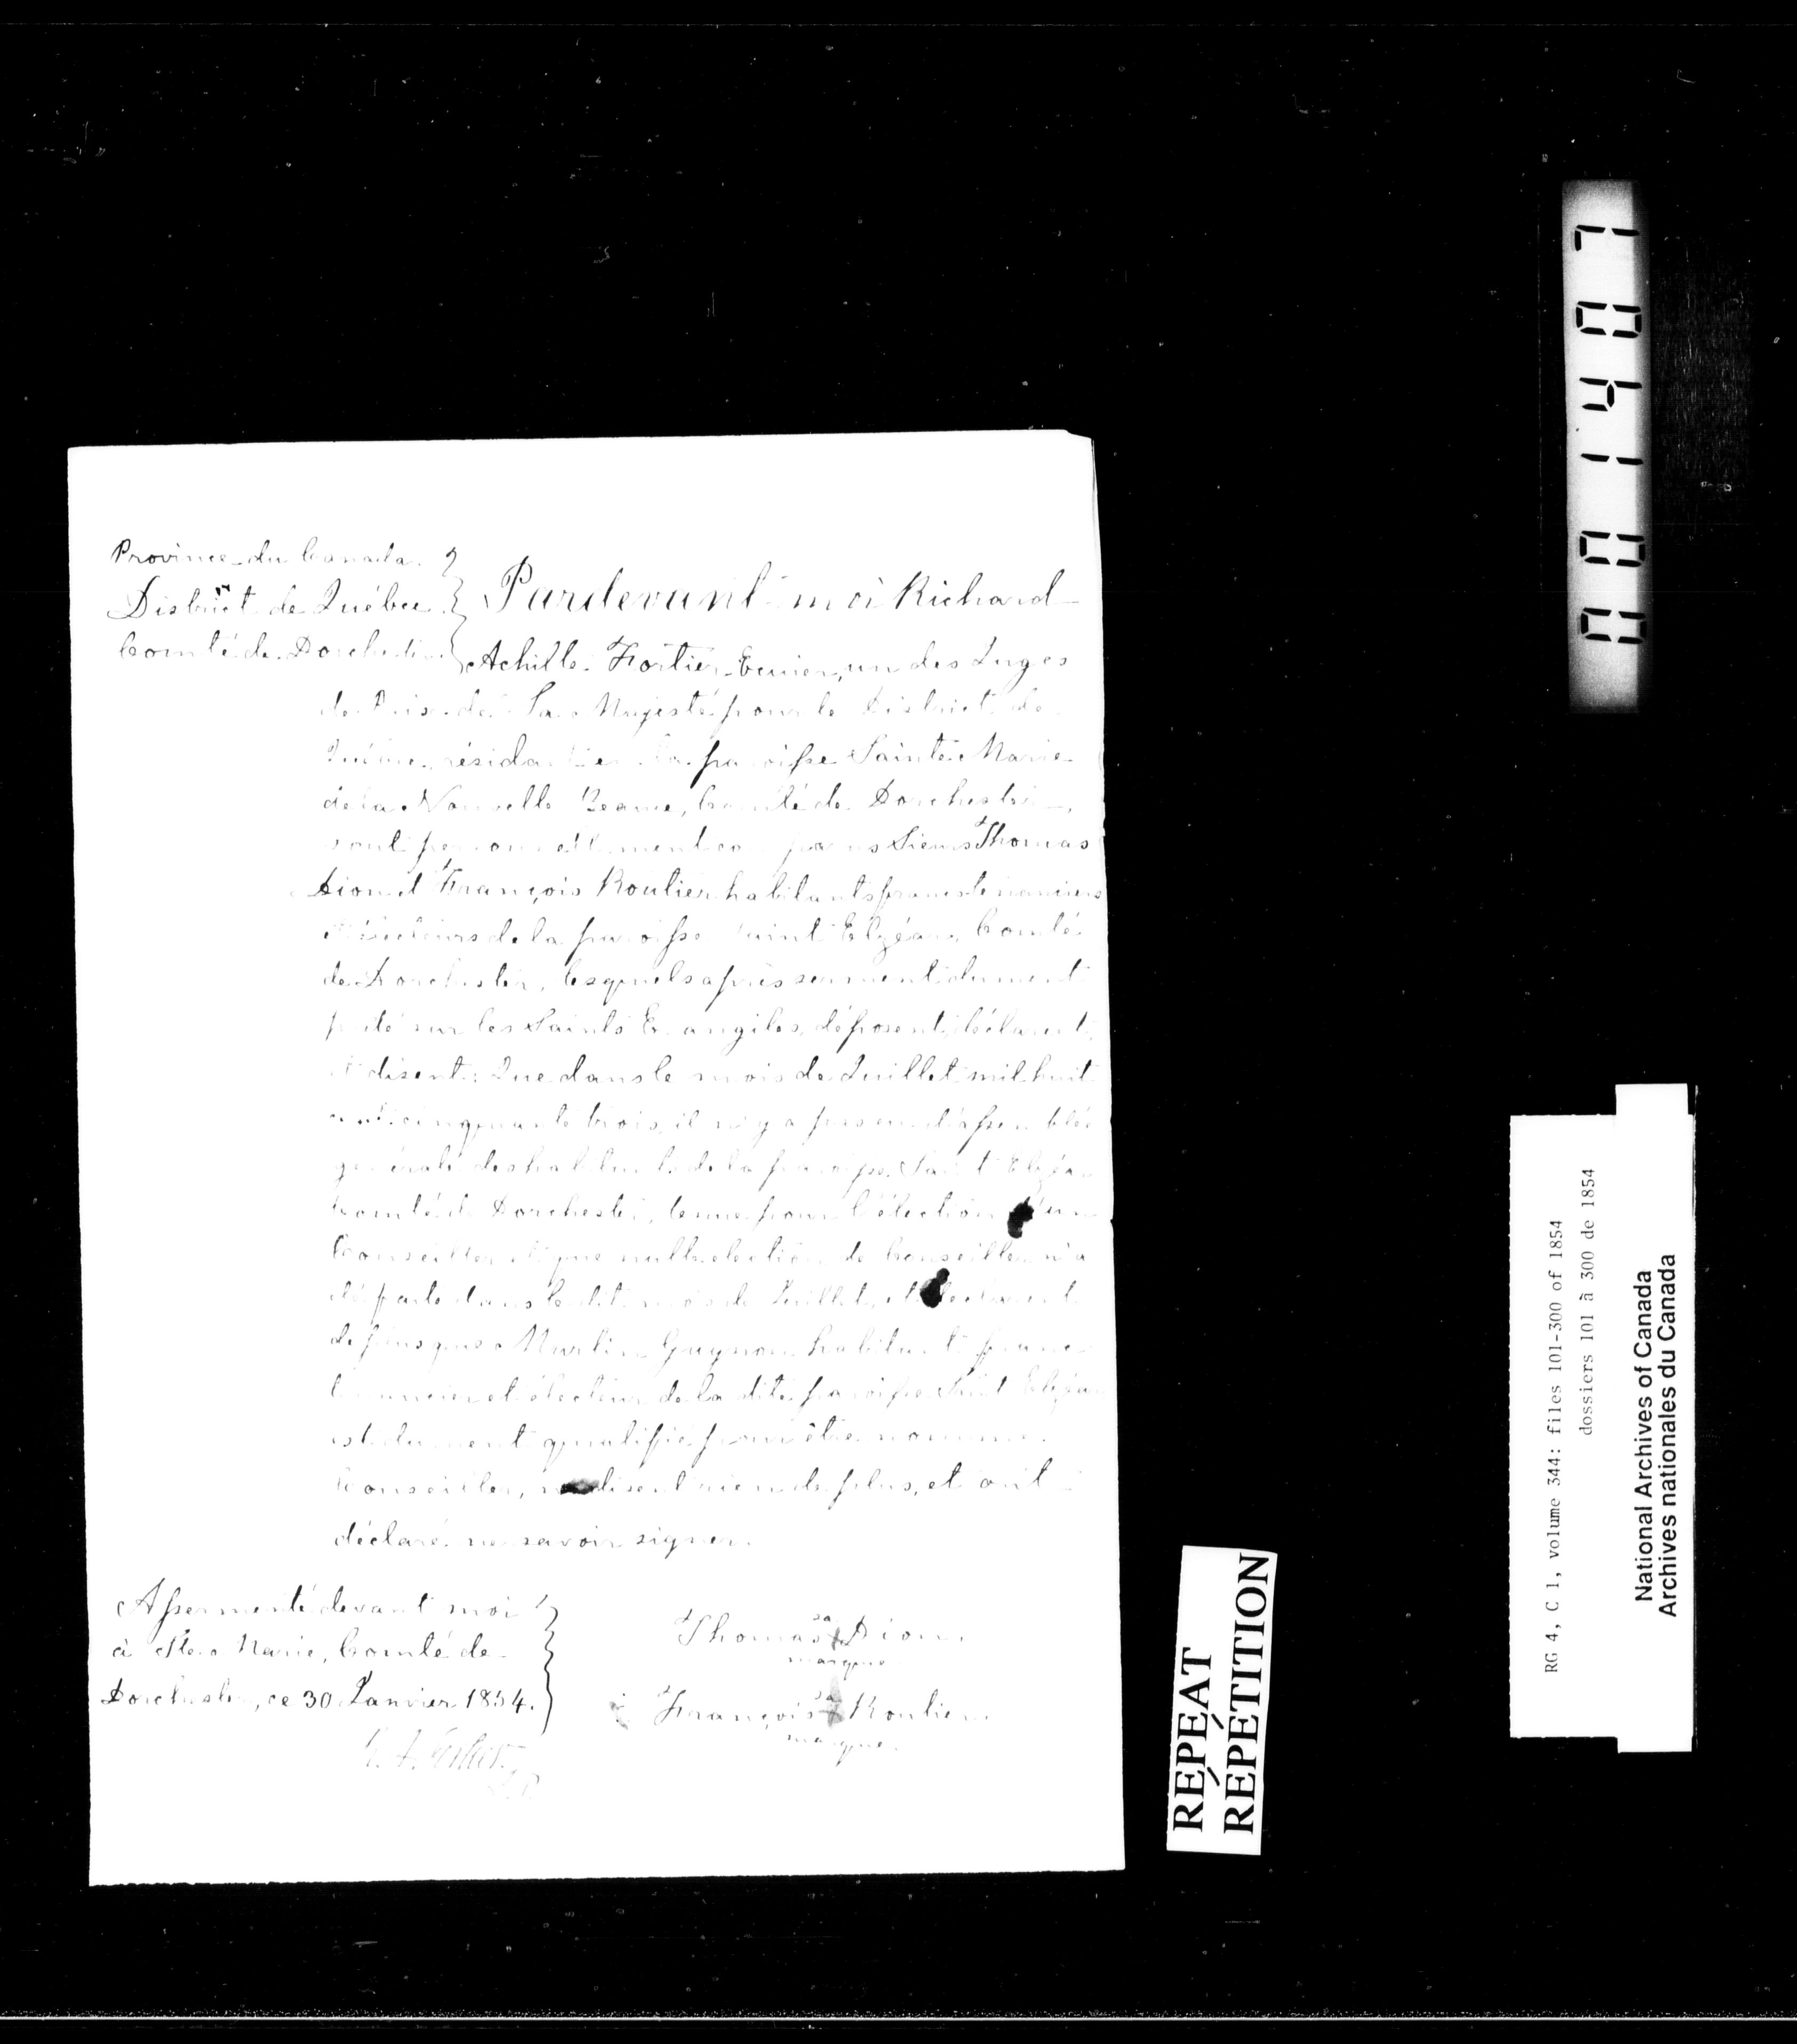 Province du Canada.
District de Québec
Comté de Dorchester
Pardevant moi Richard
Achille Fortier Ecuier, un des Juges
de Paix de Sa Majesté pour le District de
Québec, résidant en la paroisse Sainte Marie
de la Nouvelle Beauce, Comté de Dorchester,
sont personnellement comparus Sieurs Thomas
Dion et François Roulier habitants francs tenanciers
et électeurs de la paroisse Saint Elzéar, Comté
de Dorchester, lesquels après serment dument
prêté sur les Saints Evangiles, déposent, déclarent,
et disent: Que dans le mois de Juillet mil huit
cent cinquante trois, il n'y a pas eu d'assemblée
générale des habitants de la paroisse Saint Elzéar
Comté de Dorchester, tenue pour l'élection d'un
Conseiller et que nulle election de Conseiller n'a
été faite dans le dit mois de Juillet, et déclarent
de plus que Martin Guynon habitant franc
tenancier et électeur de la dite paroisse Saint Elzéar
est dument qualifié pour être nommé
Conseiller, ne disent rien de plus, et ont
déclaré ne savoir signer.
Assermenté devant moi
à Ste. Marie, Comté de
Dorchester, ce 30 Janvier 1854.
sa
Thomas + Dion.
marque.
sa
François + Roulier.
marque.
R. A. Fortier
J.P.
REPEAT
RÉPÉTITION
001407
RG 4, C 1, volume 344: files 101-300 of 1854
dossiers 101 à 300 de 1854
National Archives of Canada
Archives nationales du Canada